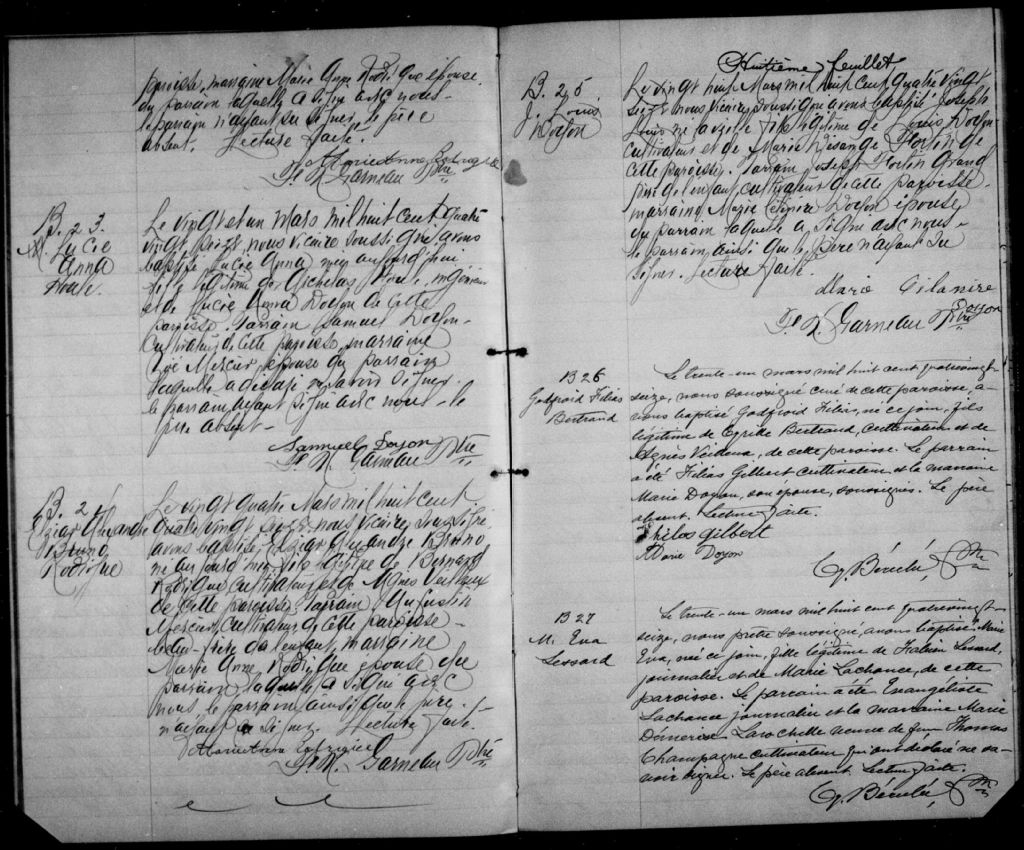 paroisse, marraine Marie Anne Rodrigue épouse
du parrain laquelle a signé avec nous
le parrain n'ayant su signer, le père
absent. Lecture faite.
Marie Anne
Garneau Ptre
B. 23.
M. Lucie
Anna
Le vingt et un Mars mil huit cent quatre
vingt seize, nous vicaire soussigné avons
baptisé Lucie Anna née aujourd'hui
fille légitime de Nicholas ingénieur
et de Lucie Anna Doyon de cette
paroisse. Parrain Samuel Doyon
cultivateur de cette paroisse, marraine
Zoé Mercier, épouse du parrain
laquelle a déclaré ne savoir signer.
le parrain ayant signé avec nous. le
père absent
Samuel Doyon
Garneau Ptre
B. 24
Elzéar Alexandre
Bruno
Rodrigue
Le vingt quatre Mars mil huit cent
quatre vingt seize, nous vicaire, soussigné,
avons baptisé, Elzéar Alexandre Bruno
né aujourd'hui, fils légitime de Bernard
Rodrigue cultivateur et de Agnès
de cette paroisse. Parrain Augustin
Mercier, cultivateur de cette paroisse
beau-frère de l'enfant, marraine
Marie Anne Rodrigue épouse du
parrain laquelle a signé avec
nous le parrain ainsi que le père
n'ayant su signer. Lecture faite.
Marie Anna
Garneau Ptre
Huitième feuillet
B. 25
J. Louis
Doyon
Le vingt huit Mars mil huit cent quatre vingt
seize nous vicaire, soussigné avons baptisé Joseph
Louis né la veille fils légitime de Louis Doyon
cultivateur et de Marie Lisange Fortin de
cette paroisse. Parrain Joseph Fortin Grand
père de l'enfant cultivateur de cette paroisse.
marraine Marie Doyon épouse
du parrain laquelle a signé avec nous
le parrain, ainsi que le père n'ayant su
signer. Lecture faite.
Marie
Doyon
Garneau Ptre
B 26
Godfroid Félias
Bertrand
Le trente-un mars mil huit cent quatrevingt-
seize, nous soussigné curé de cette paroisse a-
vons baptisé Godfroid Félias, né ce jour, fils
légitime de Bertrand, cultivateur et de
Agnès de cette paroisse. Le parrain
a été Gilbert cultivateur et la marraine
Marie Doyon, son épouse, soussignés. Le père
absent. Lecture faite.
Gilbert
Marie Doyon
Ptre
B 27
M. Eva
Lessard
Le trente-un mars mil huit cent quatrevingt-
seize, nous prêtre soussigné, avons baptisé Marie
Eva, née ce jour, fille légitime de Lessard,
journalier et de Marie Lachance, de cette
paroisse. Le parrain a été Evangéliste
Lachance journalier et la marraine Marie
Démerise Larochelle veuve de feu Thomas
Champagne cultivateur qui ont déclaré ne sa-
voir signer. Le père absent. Lecture faite.
Ptre